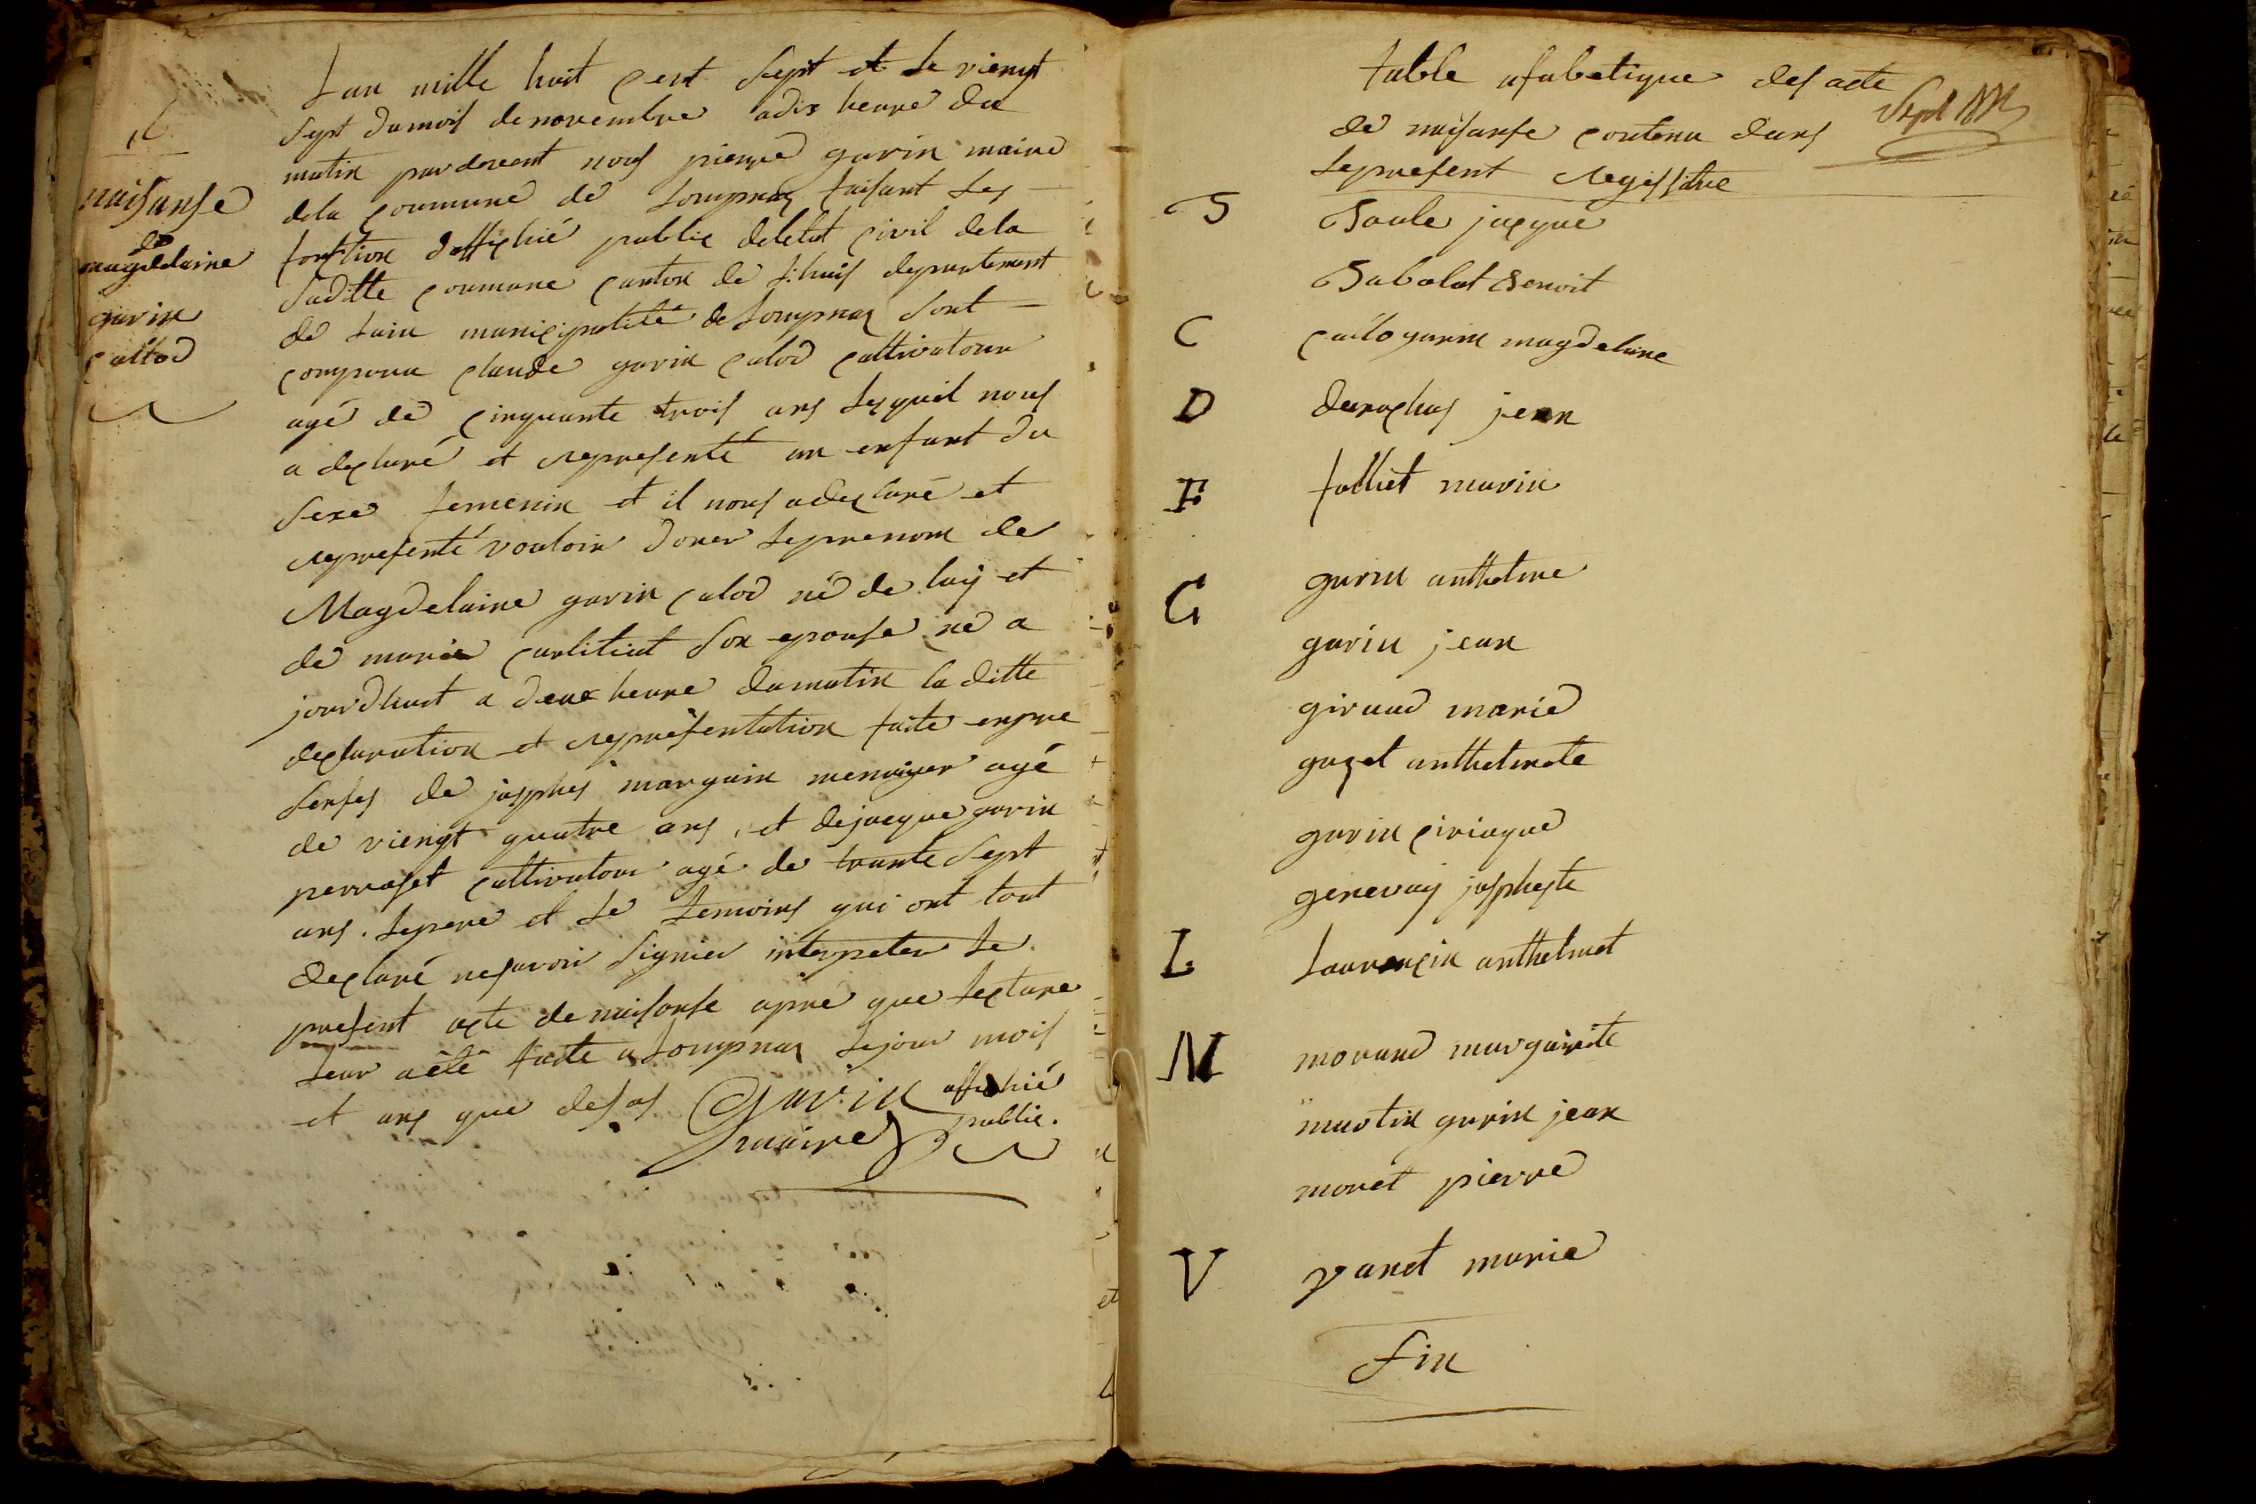 naisanse
de
magdelaine
gavin
callod
Lan mille huit cent sept et le viengt
sept du mois de novembre a dix heure du
matin par devent nous pierre gavin maire
de la coumune de Lompnas faisant les
fonction doffichié public de letat civil de la
saditte coumune canton de
de Lain municipalité de Lompnas sont
comparu claude gavin calod cultivatour
agé de cinquante trois ans lesquil nous
a declaré et represente un enfant du
sexe femenin et il nous a declaré et
represente vouloir doner le prenom de
Magdelaine gavin calod né de luy et
de marie son epouse né a
jourdhuit a deux heure du matin la ditte
declaration et representation faite en pre
senses de josphes marguin menager agé
de viengt quatre ans, et de jacque gavin
perraset cultivatour agé de trante sept
ans. le pere et le temoins qui ont tout
declaré ne savoir signier interpeler le
present acte de naisanse apré que lecture
leur a eté faite a Lompnas le jour mois
et ans que desus Gavin offichié
maire public.
table afabetique des acte
de naisanse contenu dans
le present registre
B Baule jacque
Babolat Benoit
C callo gavin magdelaine
D derochas jean
F folliet marin
G gavin anthelme
gavin jean
giraud marie
gozel anthelmete
gavin ciriaque
genevay josphete
L Laurencin anthelmet
M moraud marguirite
martin gavin jean
moret pierre
V varet marie
Fin